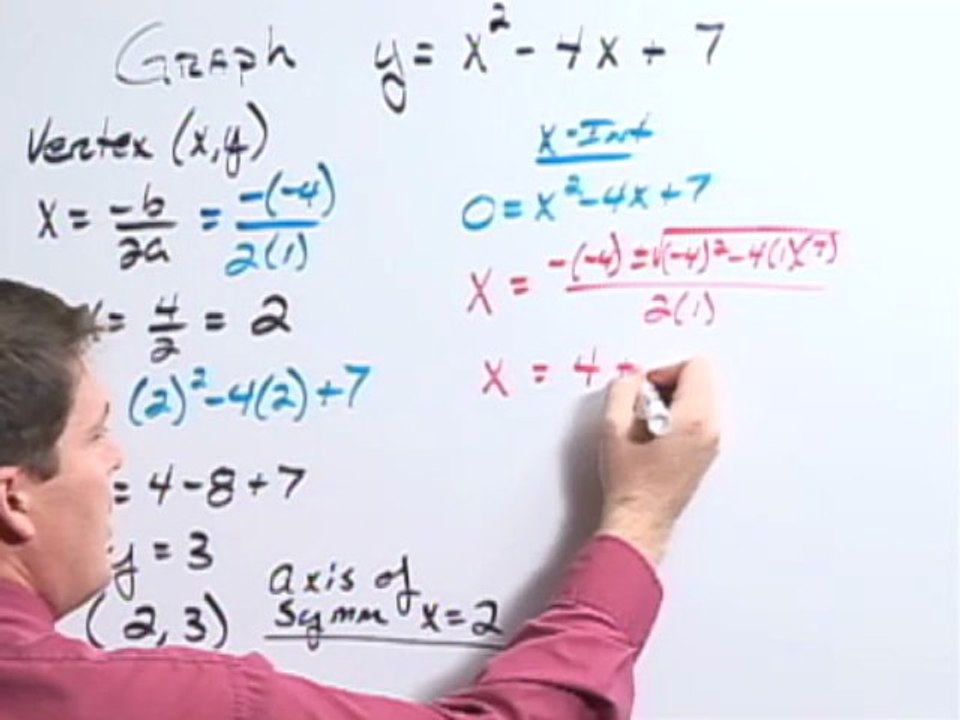 Graph y = x² - 4x + 7
Vertex (x,y)
x = -b/2a = -(-4)/2(1)
= 4/2 = 2
(2)² - 4(2) + 7
= 4 - 8 + 7
y = 3
(2, 3)
axis of
symm x = 2
x-Int
0 = x² - 4x + 7
x = -(-4) ± √(-4)² - 4(1)(7) / 2(1)
x = 4 ±